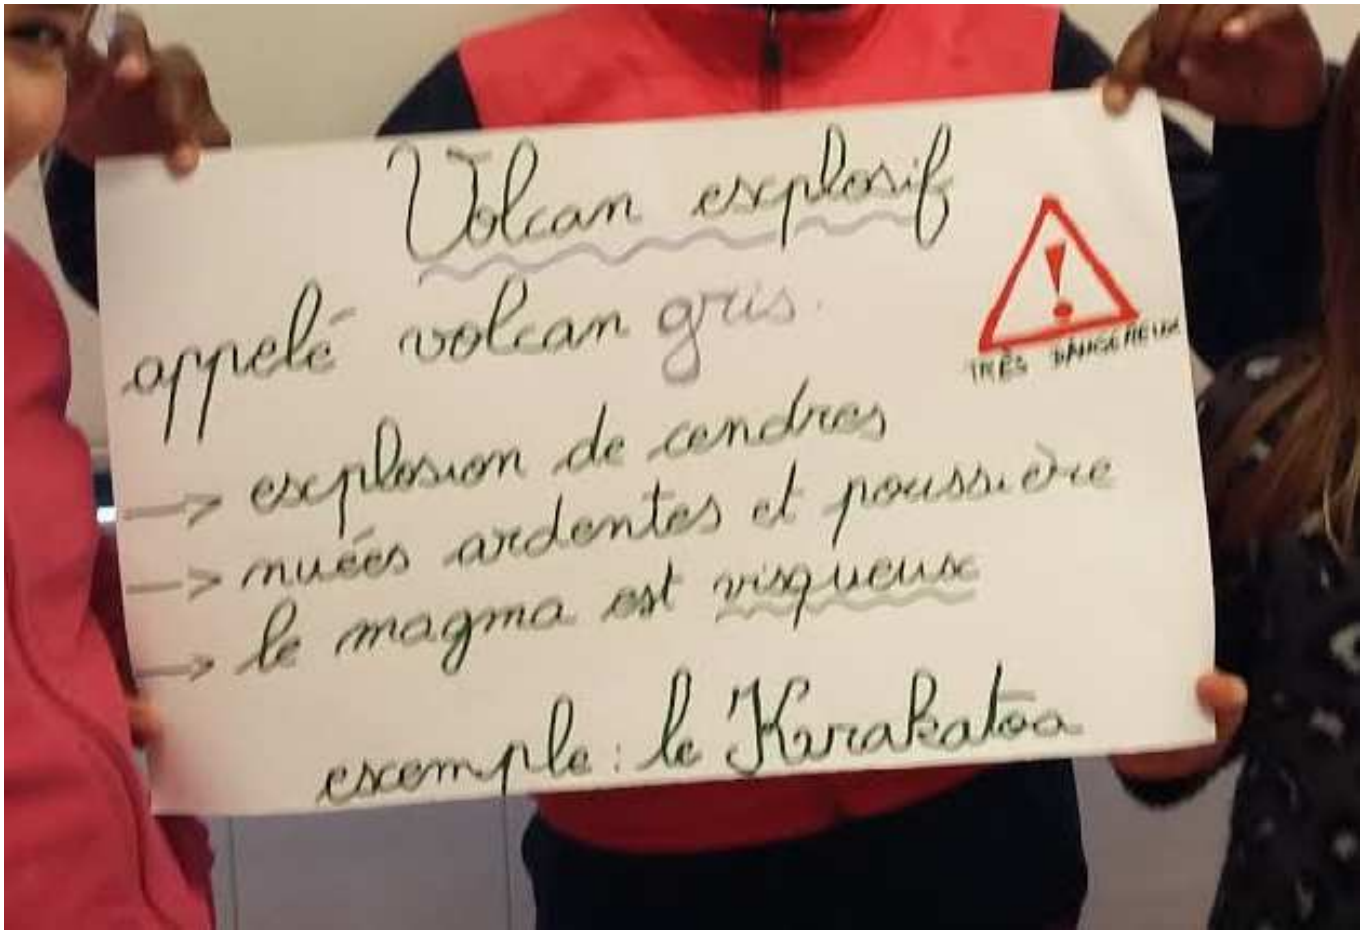 Volcan explosif
appelé volcan gris.
TRÈS DANGEREUX
→ explosion de cendres
→ nuées ardentes et poussière
→ le magma est visqueux
exemple : le Krakatoa